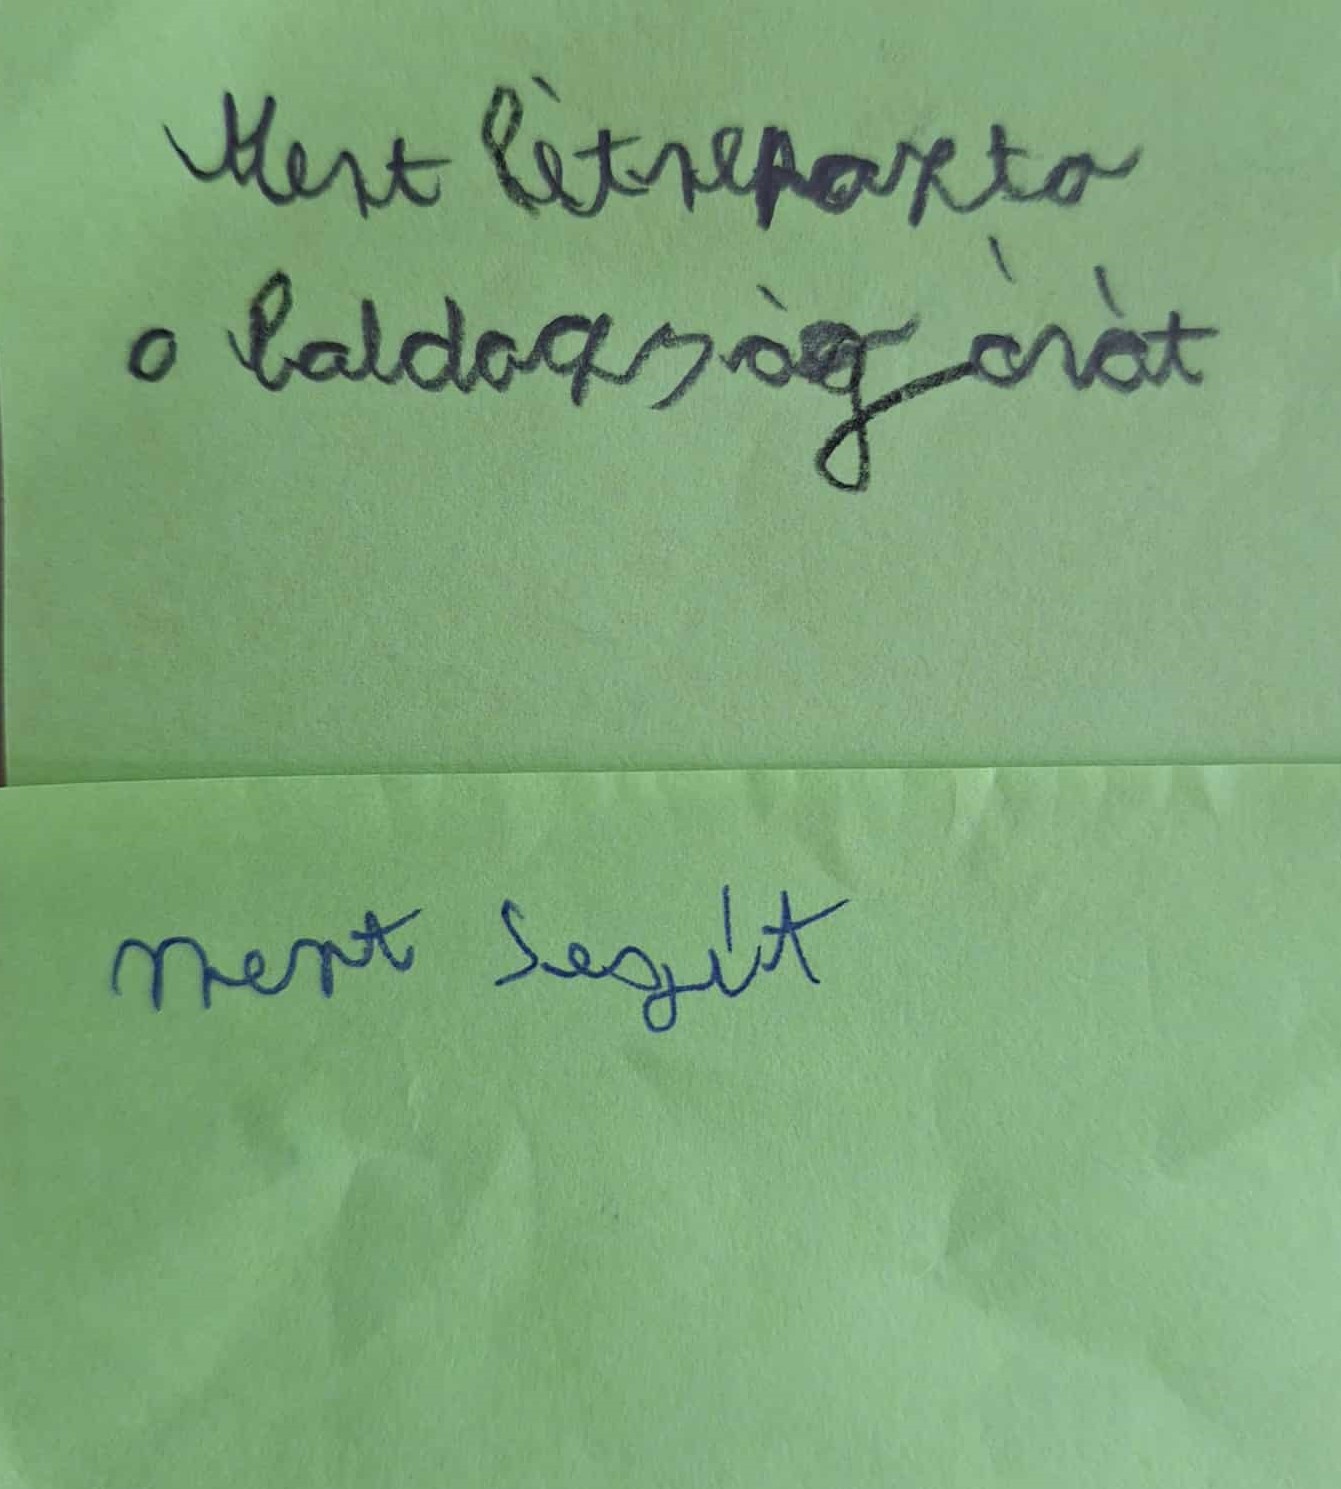 Mert létrehozta
a boldogság órát
mert segít